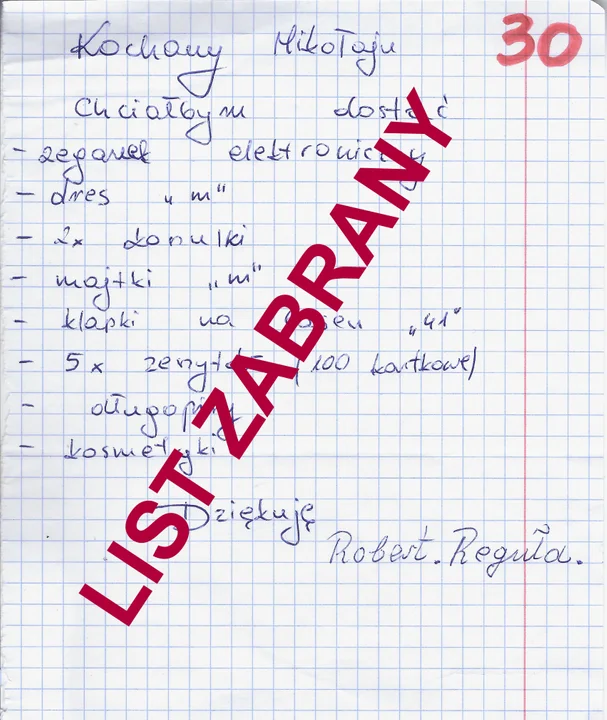 Kochany Mikołaju
30
Chciałbym dostać
- zegarek elektroniczny
- dres „m"
- 2x konulki
- majtki „m"
- klapki na basen „41"
- 5x zeszytów (100 kartkowe)
- długopisy
- kosmetyki
Dziękuję
Robert. Reguła.
LIST ZABRANY